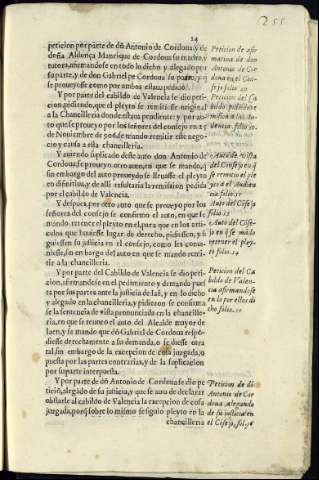 255
24
peticion por parte de dõ Antonio de Cordoua, y de
doña Aldonça Manrique de Cordoua su madre, y
tutora, afirmandose en todo lo dicho y alegado por
su parte, y de don Gabriel de Cordoua su
se prouoyesse como por ambos estaua pedido.
Y por parte del cabildo de Valencia se dio peti-
cion pidiendo, que el pleyto se remitiesse original
a la Chancilleria donde estaua pendiente: y por au-
to que se proueyo por los señores del consejo en 25
de Nouiembre de 96 se mando remitir este nego-
cio y causa a esta chancilleria.
Y auiendo suplicado deste auto don Antonio de
Cordoua se proueyo otro auto, en que se mando, q̃
sin embargo del auto proueydo se lleuasse el pleyto
en difinitiua, y de alli resultaria la remission pedida
por el cabildo de Valencia.
Y despues, por otro auto que se proueyo por los
señores del consejo se confirmo el auto, en que se
mando retener el pleyto en el, para que en los arti-
culos que huuiesse lugar de derecho, pidiessen, y si-
guiessen su justicia en el consejo, como les conui-
niesse, sin embargo del auto en que se mando remi-
tir a la chancilleria.
Y por parte del Cabildo de Valencia se dio peti-
cion, afirmandose en el pedimiento y demanda pues
ta por su parte ante la justicia de Iaẽ, y en lo dicho
y alegado en la chancilleria, y pidieron se consuma
se la sentencia de vista pronunciada en la chancille-
ria, en que se reuoco el auto del Alcalde mayor de
Iaen, y se mando que dõ Gabriel de Cordoua respõ-
diesse derechamente a su demanda, o se diesse otra
tal, sin embargo de la excepcion de cosa juzgada, o
puesta por las partes contrarias, y de la suplicacion
por su parte interpuesta.
Y por parte de dõ Antonio de Cordoua se dio pe
ticiõ, alegado de su justicia, y que se auia de declarar
obstarle al cabildo de Valencia la excepcion de cosa
juzgada, porq̃ sobre lo mismo se siguio pleyto en la
chancilleria
Peticion de afir
matiua de don
Antonio de Cor
doua en el Con-
sejo folio
Peticion del Ca
bildo, pidiẽdo se
remita a la Au-
diencia folio
Auto de vista
del Cõsejo en q̃
se remitio el ple
yto a el Audien
cia folio
Auto del Cõsejo
folio
Auto del Cõse-
jo en q̃ se mãdo
retener el pley-
to folio
Peticion del Ca
bildo de Valen-
cia afirmandose
en lo por ellos di
cho folio
Peticion de dõ
Antonio de Cor
doua, alegando
de su justicia en
el Cõsejo, fol.